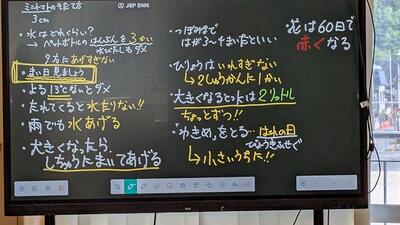 ミニトマトのそだて方
3cm
JBP DNN
・水はどれくらい?
→ペットボトルのはんぶんを3かい
水びたしもダメ
夕方にあげすぎない
・まい日見ましょう
・よる13℃ないとダメ
・たれてくると水たりない!!
・雨でも水あげる
・大きくなったら、
しちゅうにまいてあげる
・つっぽみまで
はが8〜9まいだといい
・ひりょうはいれすぎない
→2しゅうかんに1かい
・大きくなるとったは2%トル
ちょっとずつ!!
・わきめ、をとる…はれの日
びょうきふせぐ
→小さいうちに!!
・花は60日で
赤くなる